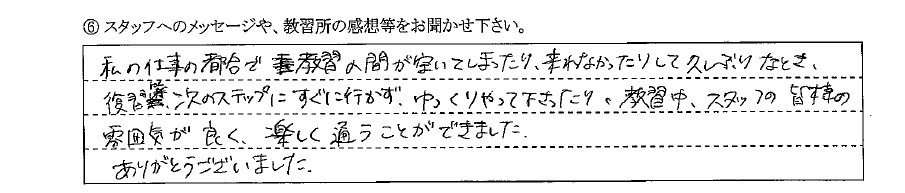 ⑥ スタッフへのメッセージや、教習所の感想等をお聞かせ下さい。
私の仕事の都合で教習の間が空いてしまったり、来れなかったりして久しぶりなとき、
復習等、次のステップにすぐに行かず、ゆっくりやって下さったり、教習中、スタッフの皆様の
雰囲気が良く、楽しく通うことができました。
ありがとうございました。